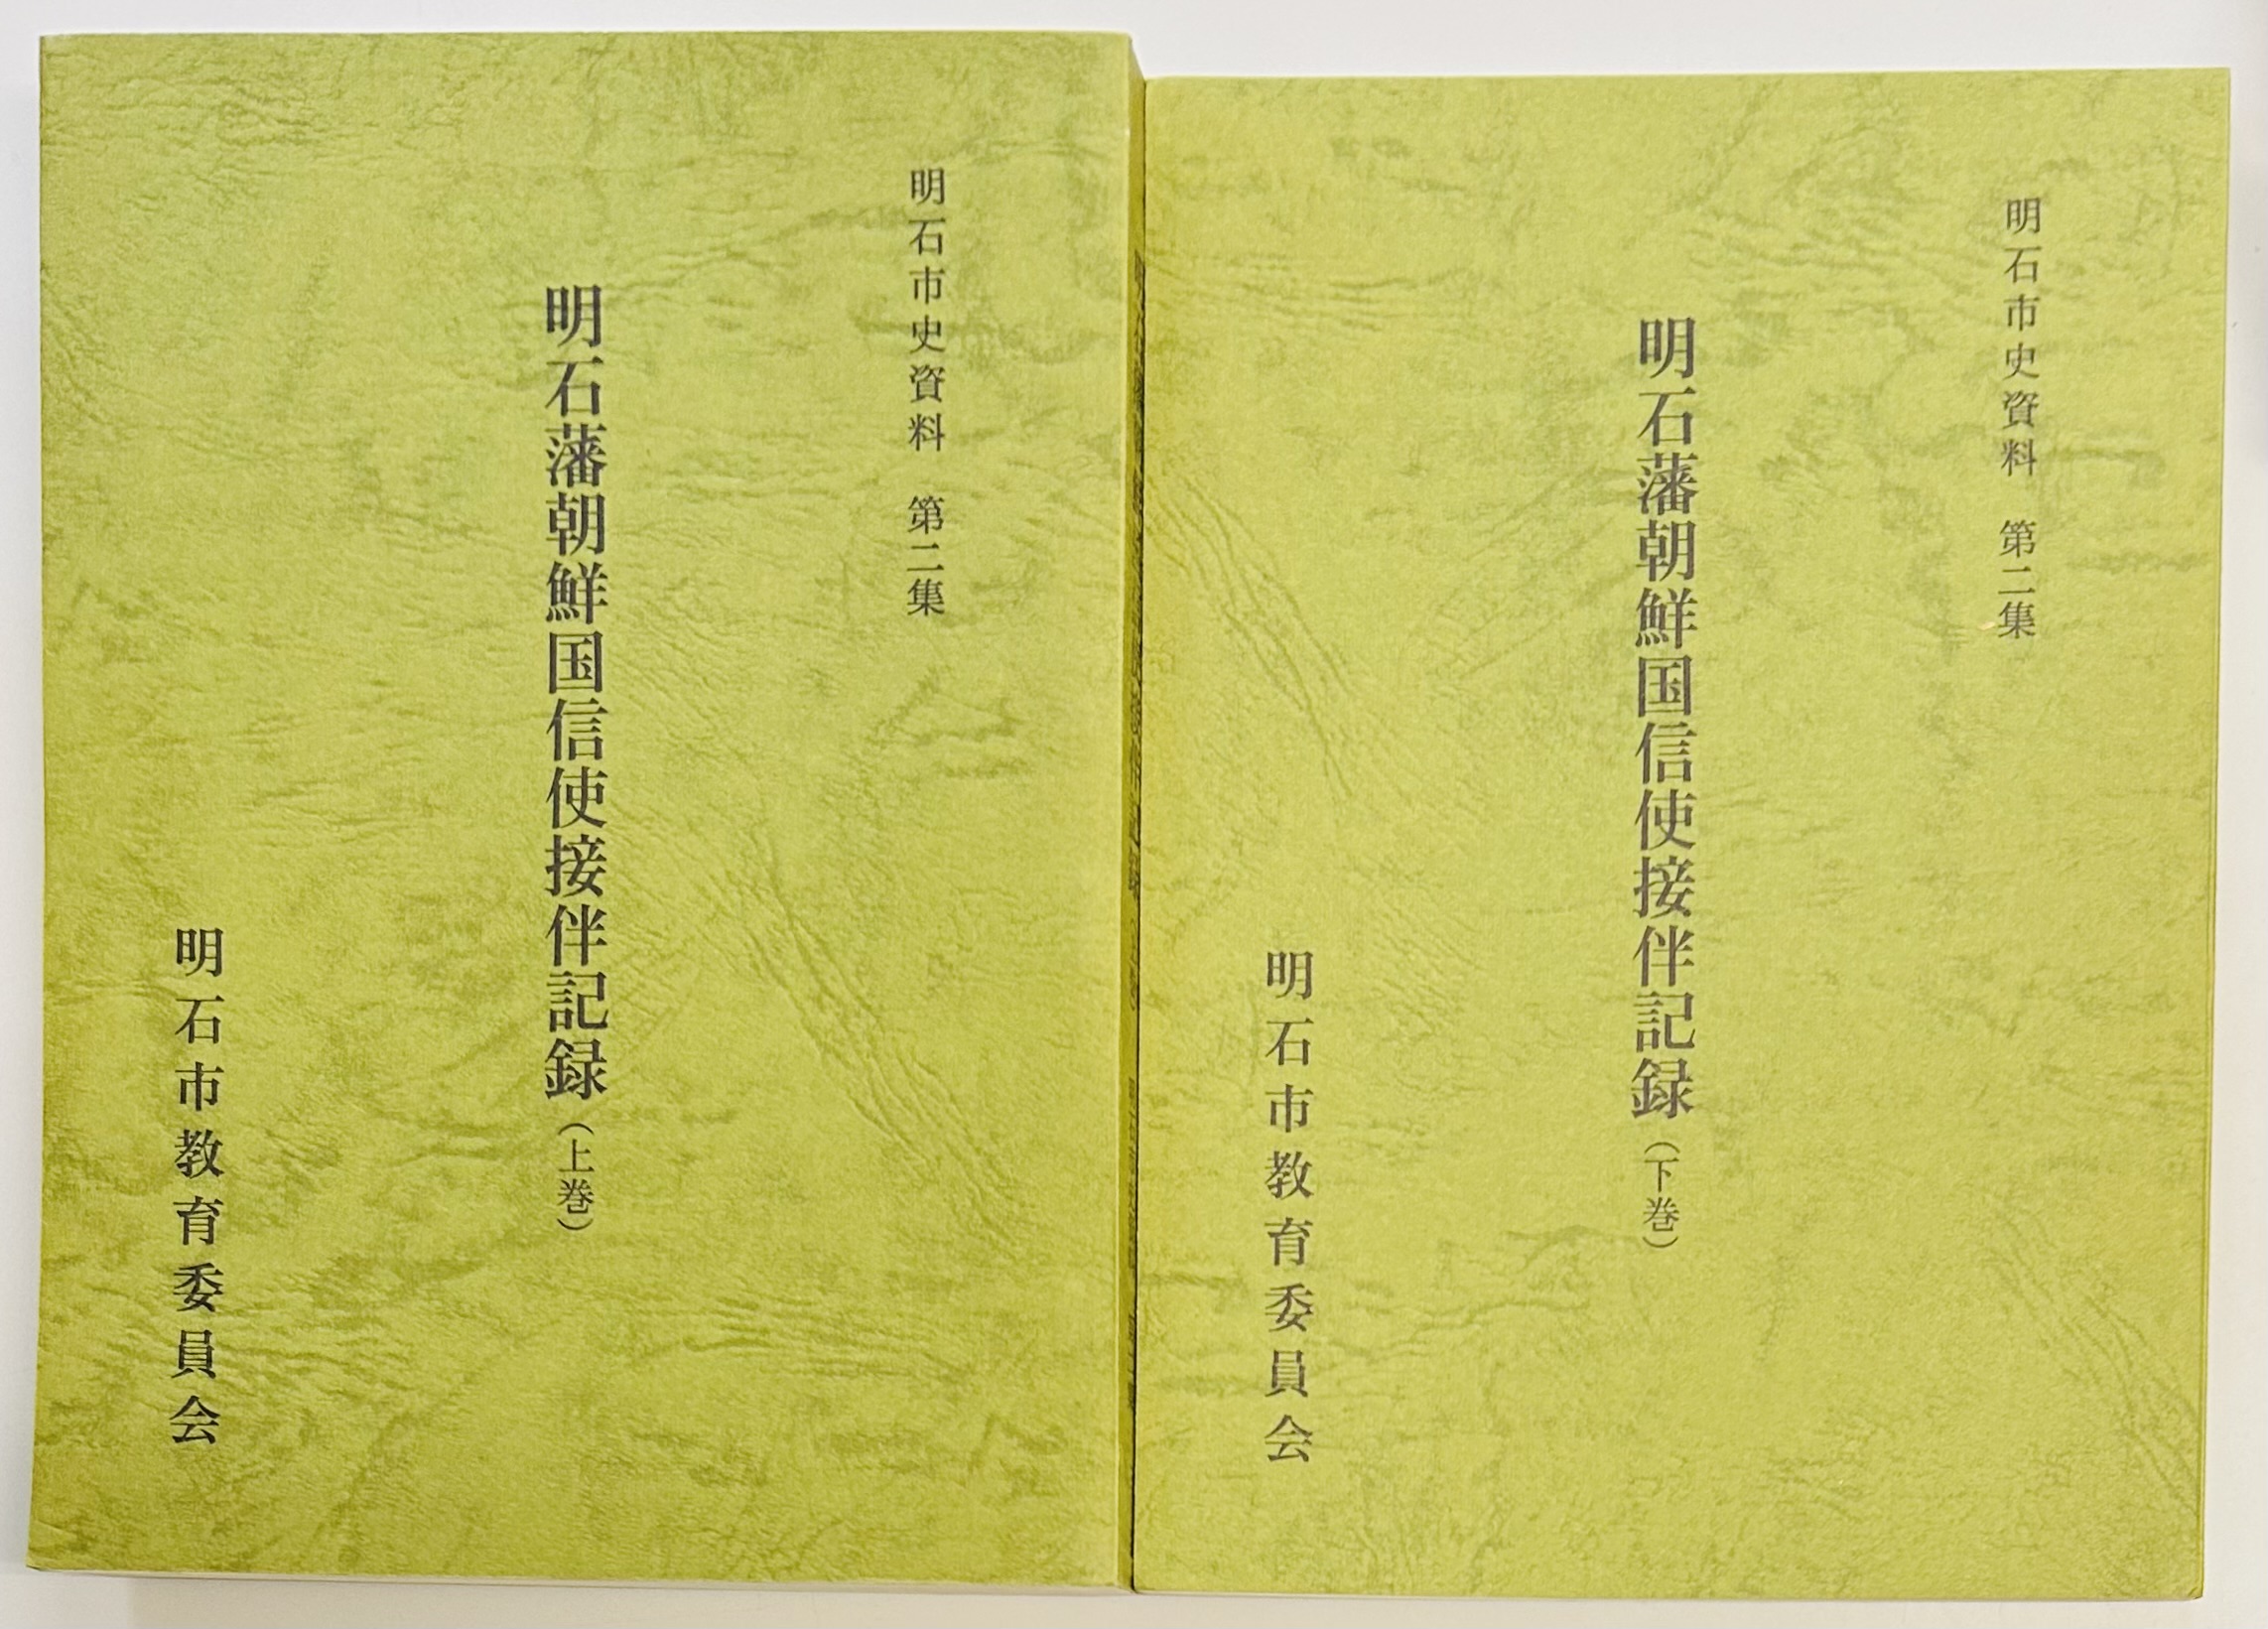 明石市史資料　第二集
明石藩朝鮮国信使接伴記録（上巻）
明石市教育委員会
明石市史資料　第二集
明石藩朝鮮国信使接伴記録（下巻）
明石市教育委員会